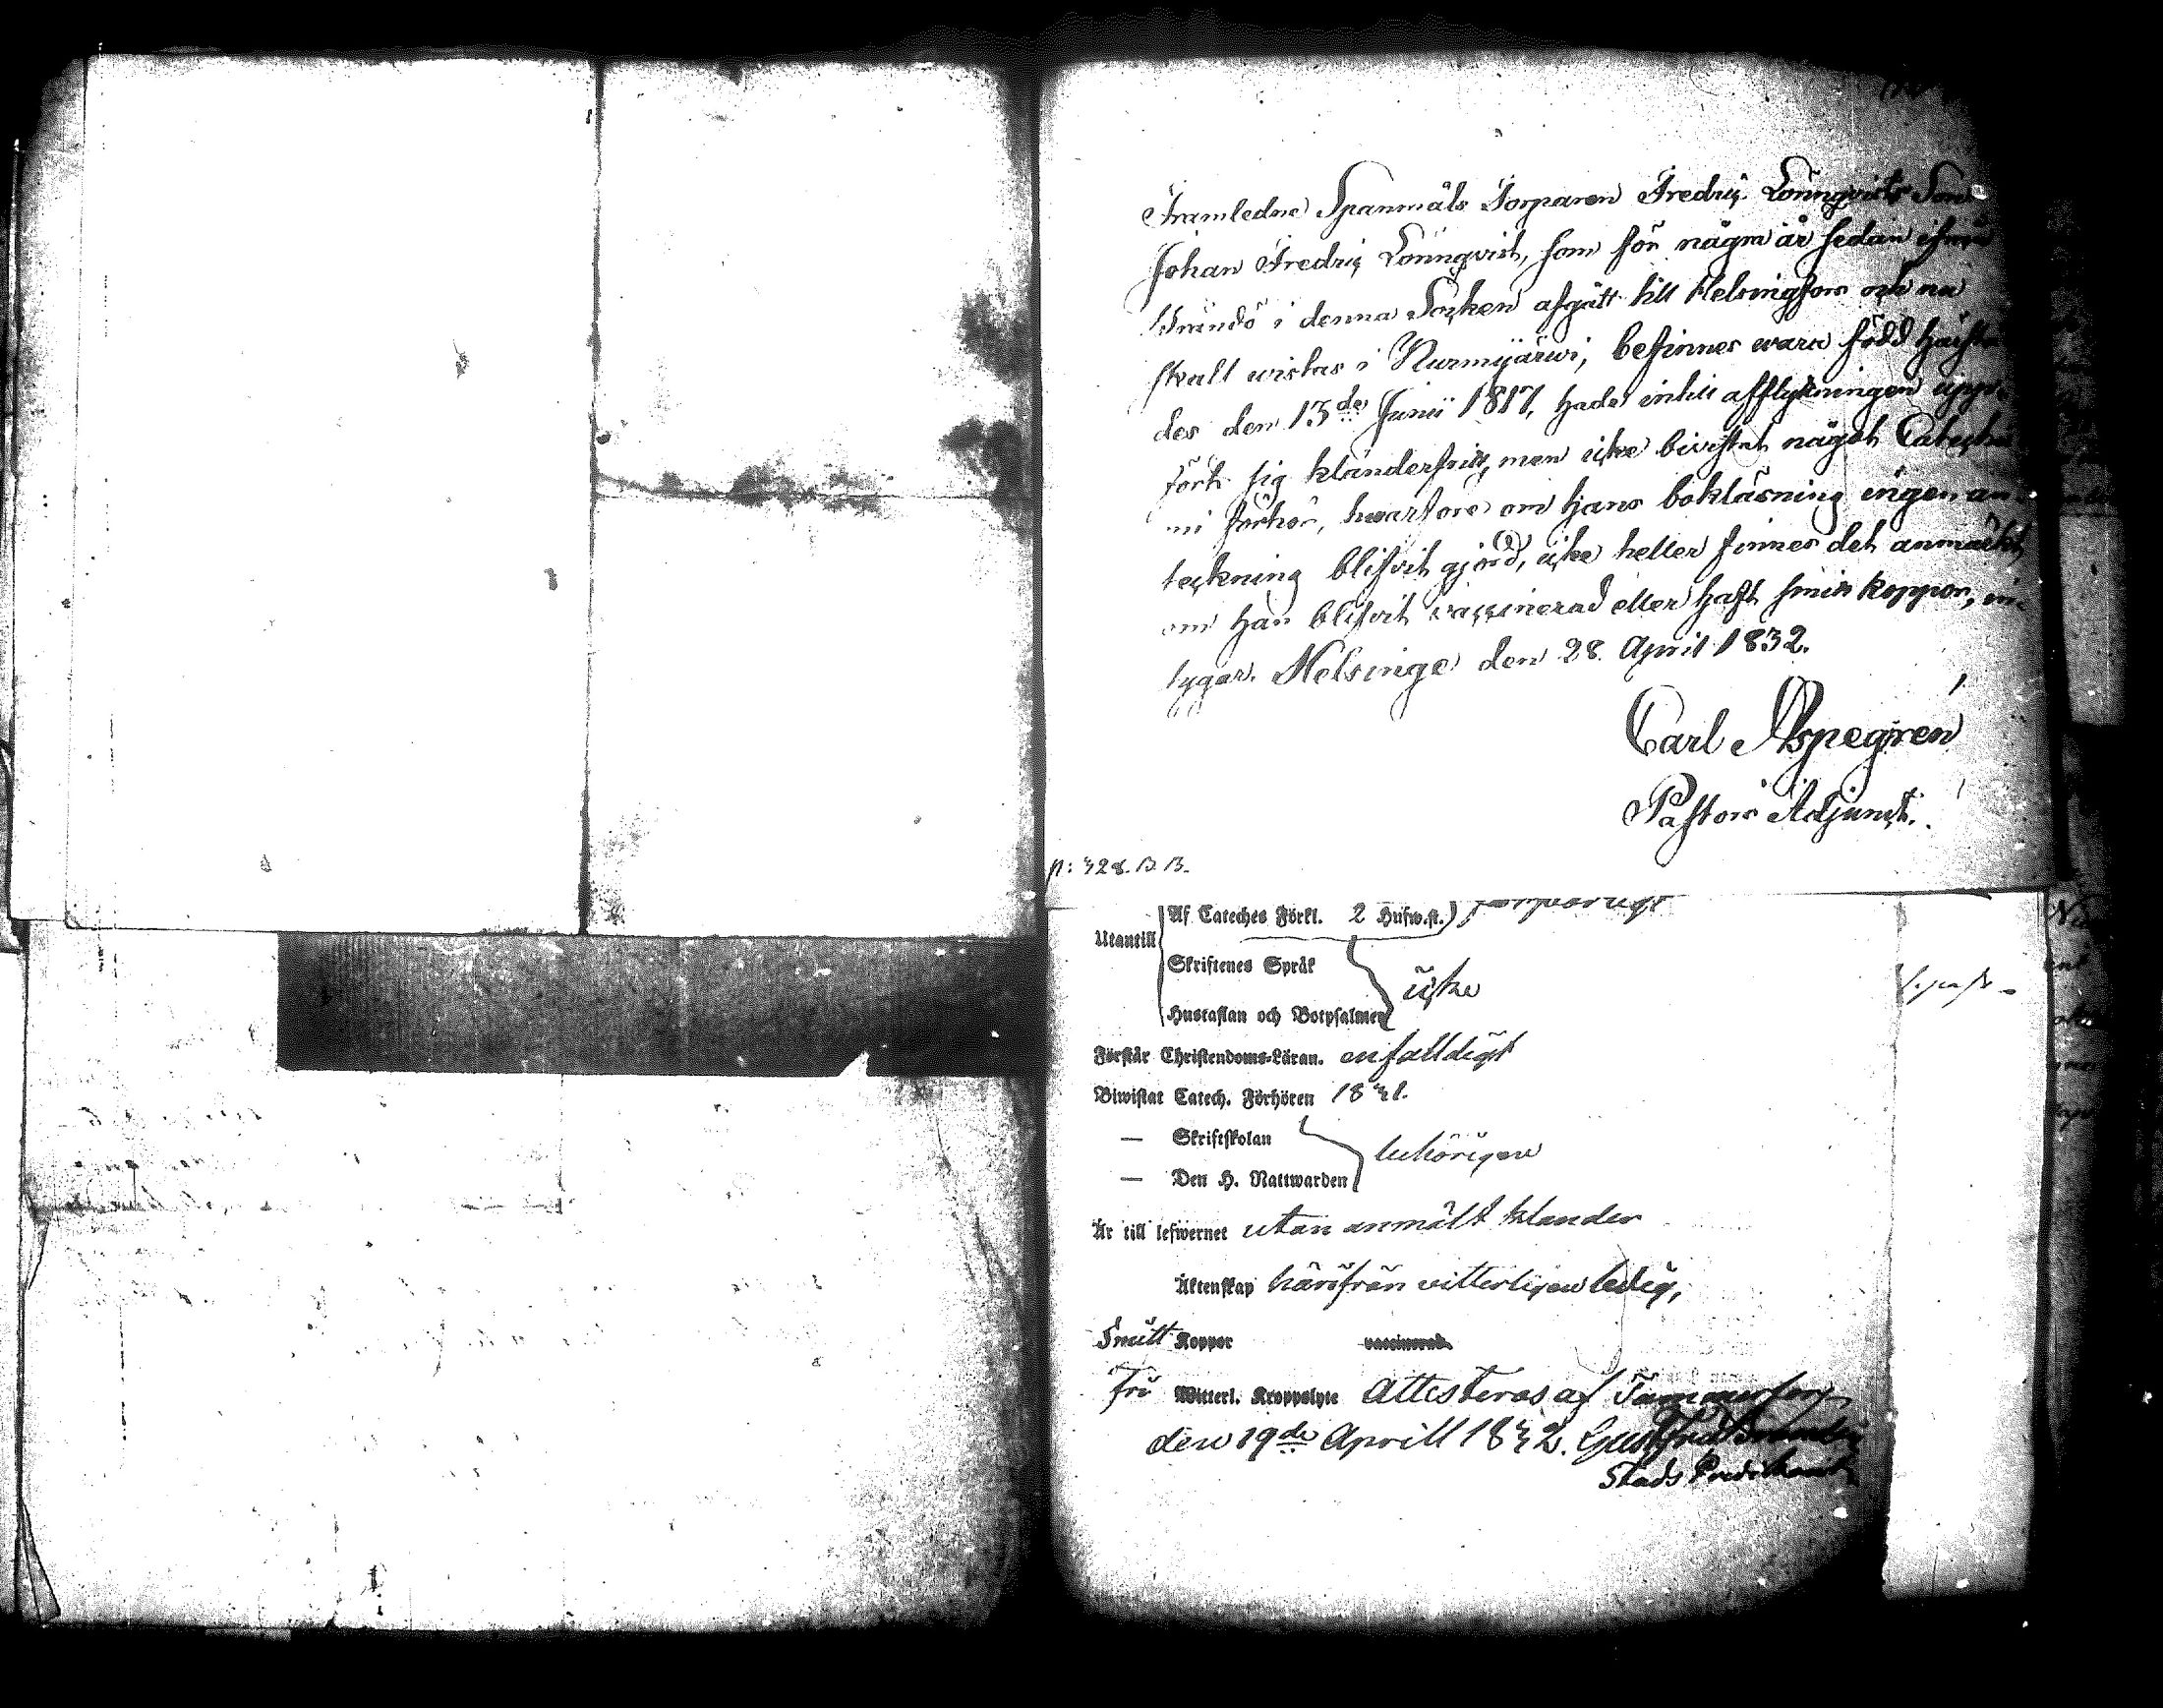 Framledne Spanmåls Torparen Fredric Lönnqvists Son
Johan Fredric Lönnqvist, som för några år sedan ifrån
i denna Socken afgått till Helsingfors och nu
skall wistas i Nurmijärwi, befinnes wara född härstä
des den 13de Junii 1817, hade intill afflyttningen uppf
fört sig klanderfritt, men icke bivistat något Cateche
mi förhör, hwarföre om hans bokläsning ingen an-
teckning blifvit gjord, icke heller finnes det anmärkt,
om han blifvit vaccinerad eller haft smitt koppor, in-
tygar. Helsinge den 28 April 1832.
Carl Aspegren
Pastors Adjunct.
p: 328. B. B.
Utantill
Af Cateches Förkl. 2 Husw.st.)
Skriftenes Språk
icke
Hustaflan och Botpsalmen
Förstår Christendoms-Läran. enfaldigt
Biwistat Catech. Förhören 1831.
— Skriftskolan
behörigen
— Den H. Nattwarden
Är till lefwernet utan anmält klander
Äktenskap härifrån vitterligen ledig,
Smitt Koppor vaccinerad.
Fri Witterl. Kroppslyte Attesteras af Tammerfors
den 19de Aprill 1832. Gust
Stads Predikant